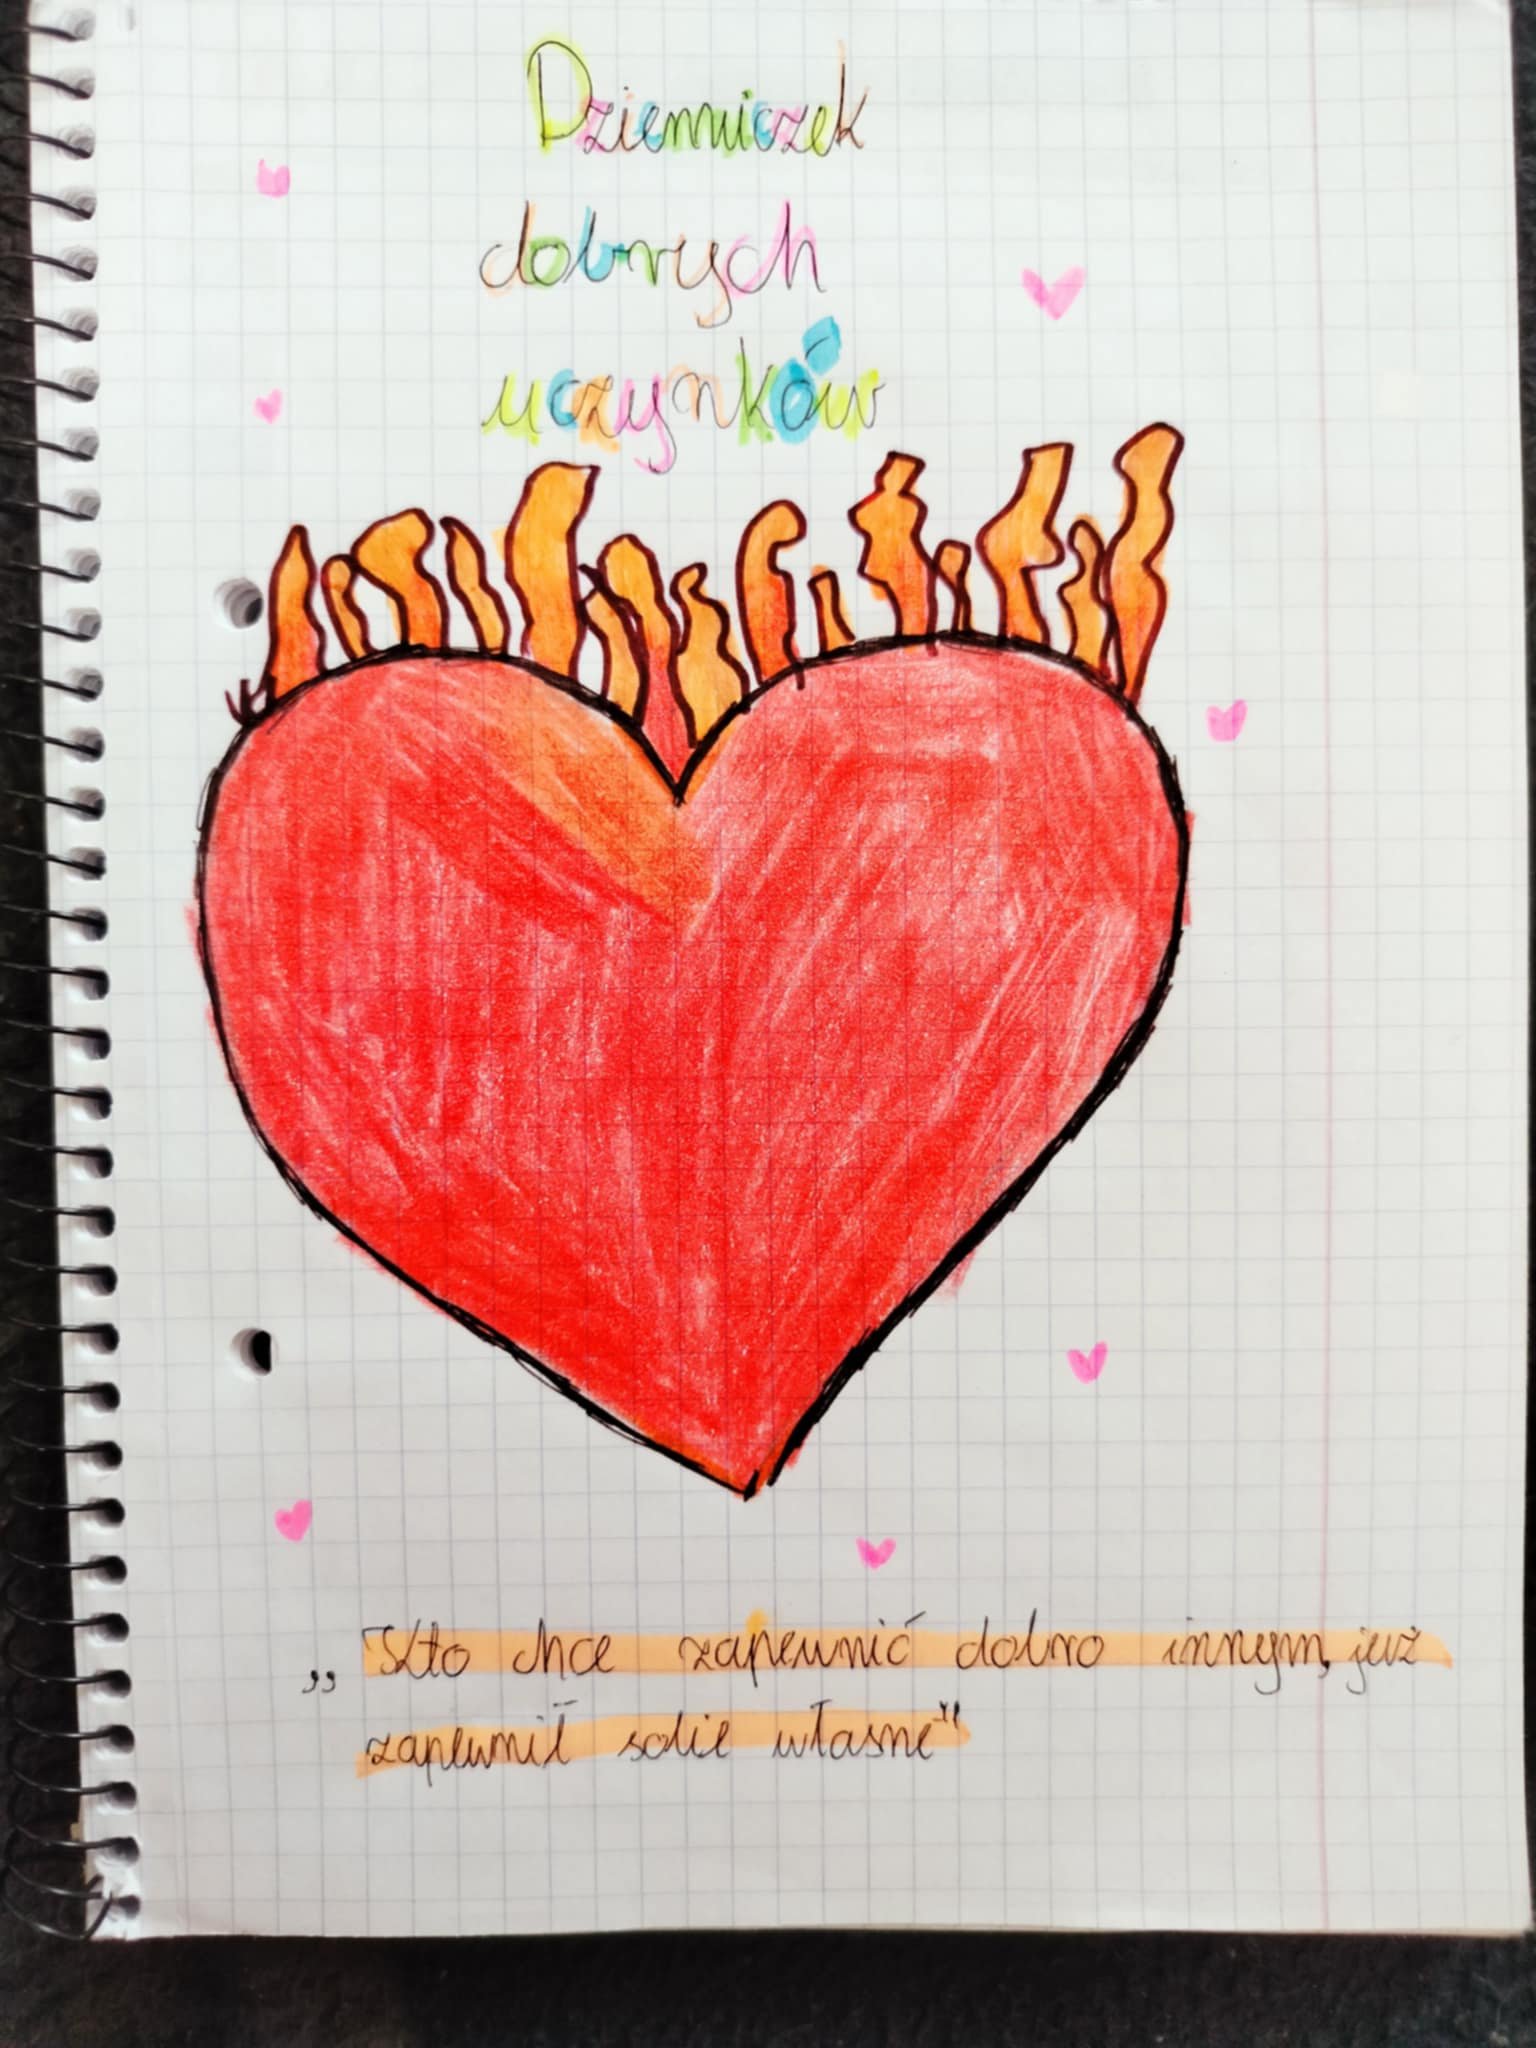 Dzienniczek
dobrych
uczynków
„Kto chce zapewnić dobro innym, już
zapewnił sobie własne”